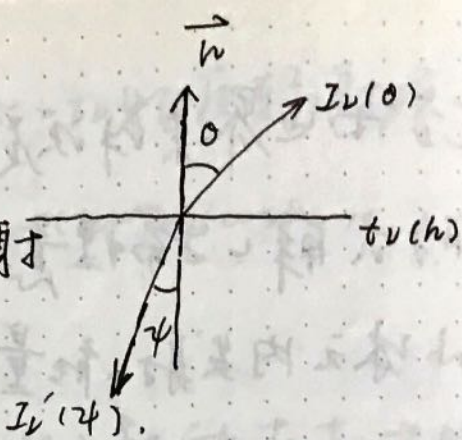 n
I_ν(θ)
θ
t_ν(h)
射
ψ
I_ν'(ψ).